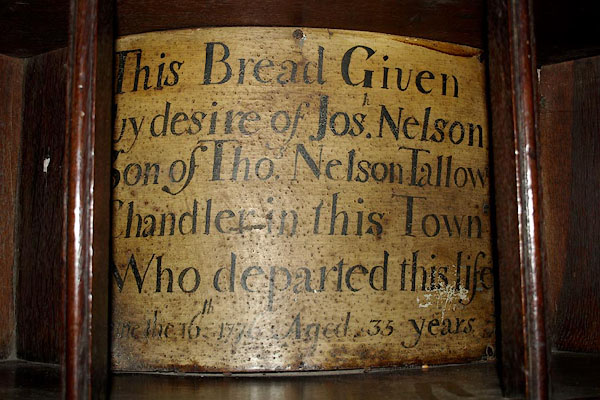 This Bread Given
by desire of Josh. Nelson
Son of Tho. Nelson Tallow
Chandler in this Town
Who departed this life
the 16th Aged 35 years